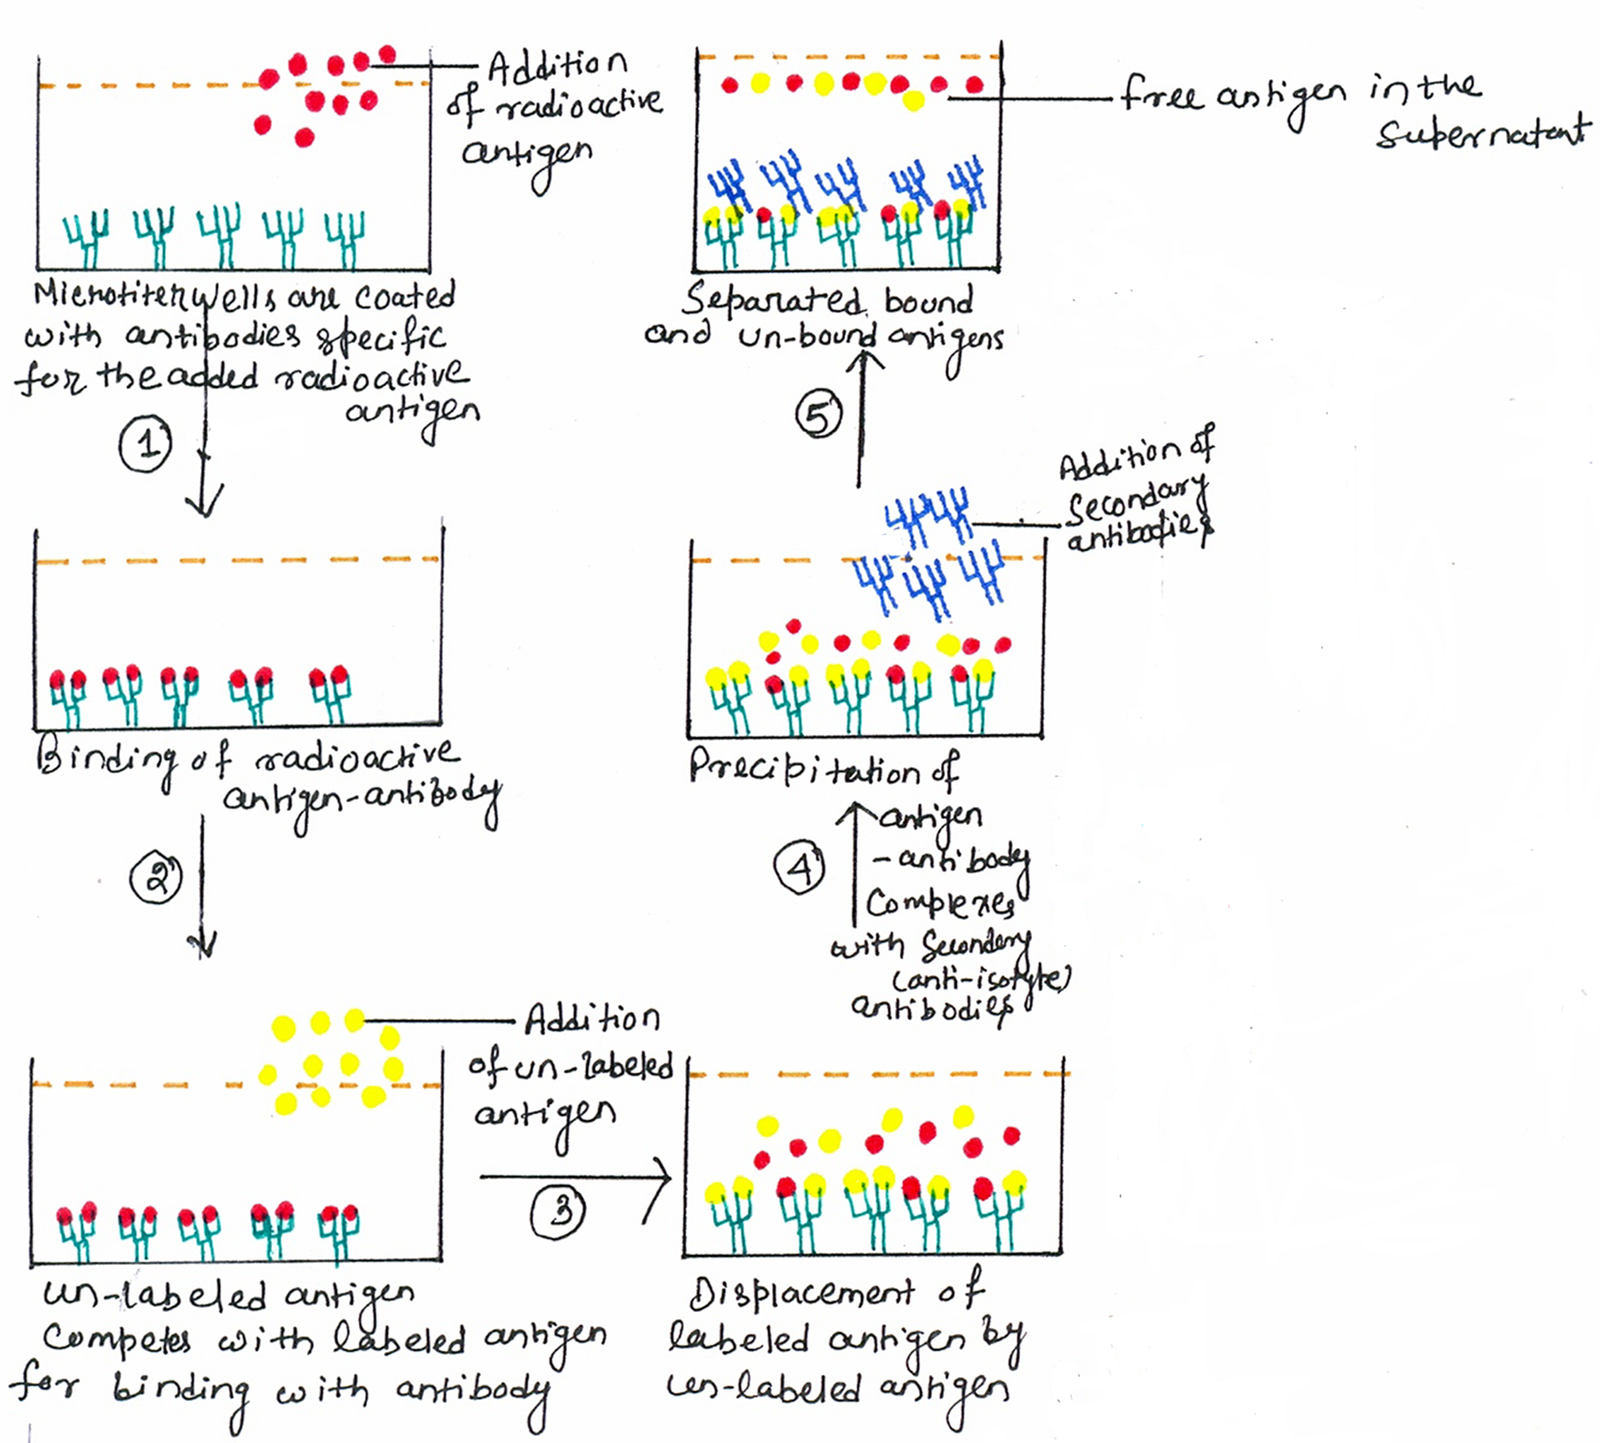 Addition
of radioactive
antigen
Microtiter wells are coated
with antibodies specific
for the added radioactive
antigen
1
Binding of radioactive
antigen-antibody
2
Addition
of un-labeled
antigen
un-labeled antigen
Competes with labeled antigen
for binding with antibody
3
Displacement of
labeled antigen by
un-labeled antigen
4
Precipitation of
antigen
-antibody
Complexes
with Secondary
(anti-isotype)
antibodies
Addition of
Secondary
antibodies
5
Separated bound
and un-bound antigens
free antigen in the
Supernatant